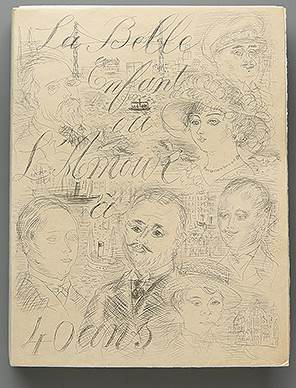 La Belle
Enfant
ou
L'Amour
à
40 ans